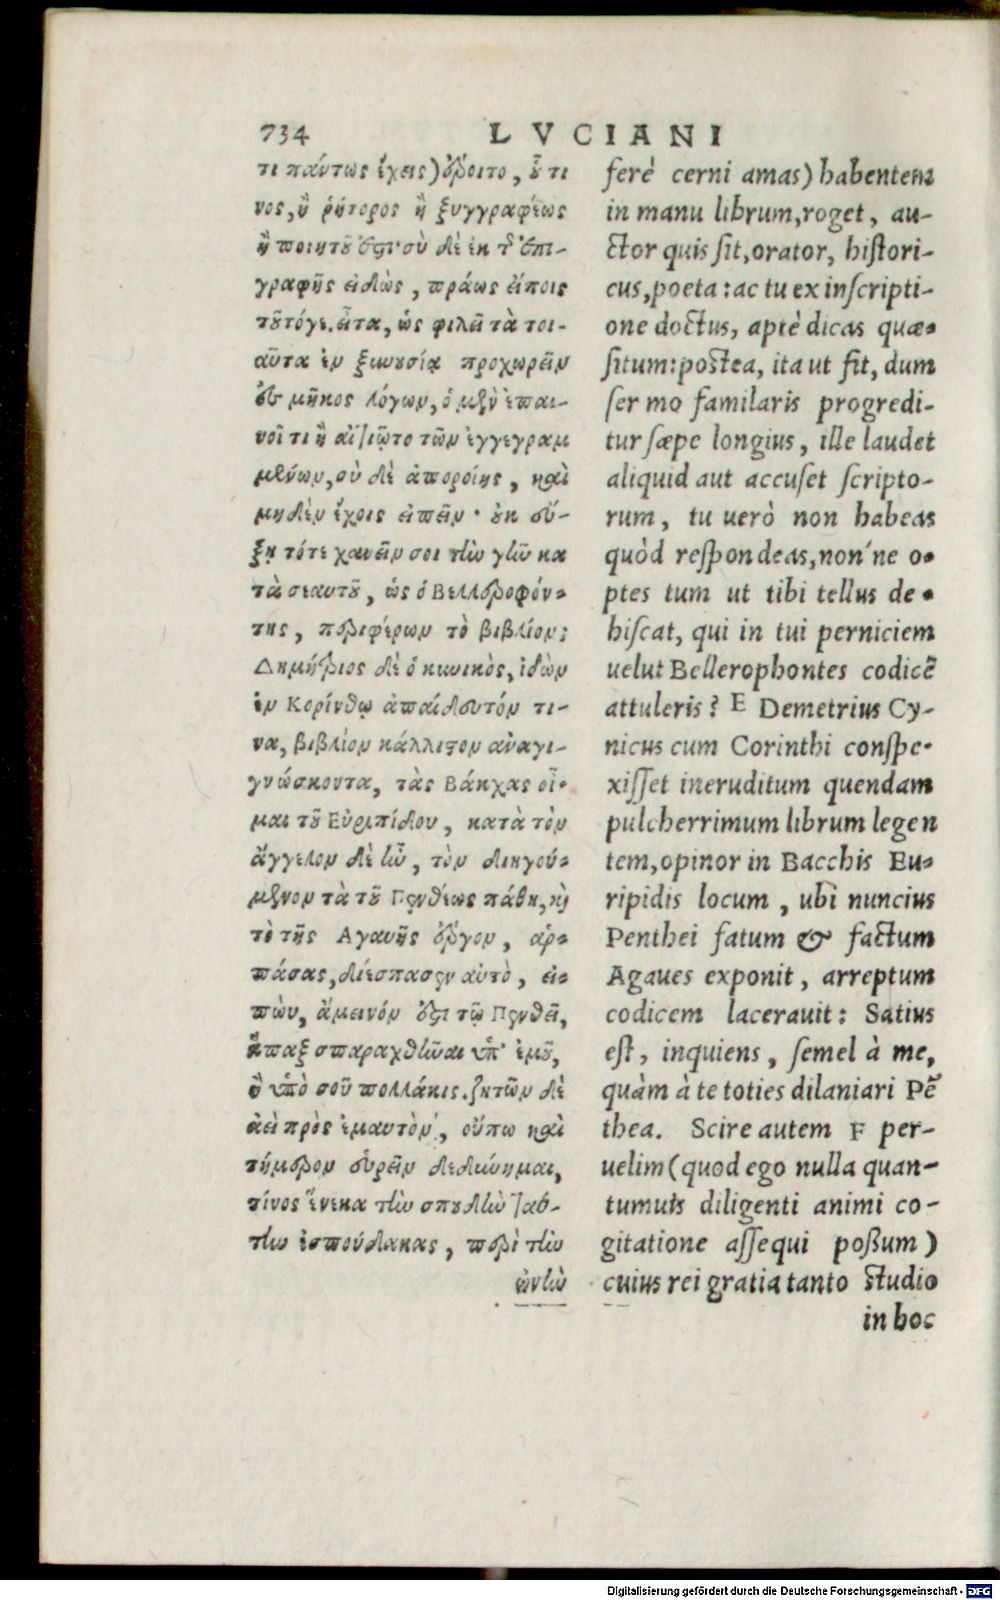 734 LVCIANI
τι πάντως ἔχεις) ἔροιτο, οὗ τι
νος, ἢ ῥήτορος ἢ ξυγγραφέως
ἢ ποιητοῦ ἐστι· σὺ δὲ ἐκ τῆς ἐπι-
γραφῆς εἰδὼς, πράως εἴποις
τοῦτόγε. εἶτα, ὡς φιλεῖ τὰ τοι-
αῦτα ἐν ξυνουσίᾳ προχωρεῖν
εἰς μῆκος λόγων, ὁ μὲν ἐπαι-
νοῖ τι ἢ αἰτιῷτο τῶν ἐγγεγραμ
μένων, σὺ δὲ ἀποροίης, καὶ
μηδὲν ἔχοις εἰπεῖν· οὐκ εὔ-
ξῃ τότε χανεῖν σοι τὴν γῆν κα
τὰ σεαυτοῦ, ὡς ὁ Βελλεροφόν-
της, περιφέρων τὸ βιβλίον;
Δημήτριος δὲ ὁ κυνικὸς, ἰδὼν
ἐν Κορίνθῳ ἀπαίδευτόν τι-
να, βιβλίον κάλλιστον ἀναγι-
γνώσκοντα, τὰς Βάκχας οἶ-
μαι τοῦ Εὐριπίδου, κατὰ τὸν
ἄγγελον δὲ ἦν, τὸν διηγού-
μενον τὰ τοῦ Πενθέως πάθη, καὶ
τὸ τῆς Αγαυῆς ἔργον, ἁρ-
πάσας, διέσπασεν αὐτὸ, εἰ-
πὼν, ἄμεινόν ἐστι τῷ Πενθεῖ,
ἅπαξ σπαραχθῆναι ὑπ' ἐμοῦ,
ἢ ὑπὸ σοῦ πολλάκις. ζητῶν δὲ
ἀεὶ πρὸς ἐμαυτὸν, οὔπω καὶ
τήμερον εὑρεῖν δεδύνημαι,
τίνος ἕνεκα τὴν σπουδὴν ταύ-
την ἐσπούδακας, περὶ τὴν
ὠνὴν
ferè cerni amas) habentem
in manu librum, roget, au-
ctor quis sit, orator, histori-
cus, poeta: ac tu ex inscripti-
one doctus, aptè dicas quæ-
situm: postea, ita ut fit, dum
ser mo familaris progredi-
tur sæpe longius, ille laudet
aliquid aut accuset scripto-
rum, tu uerò non habeas
quòd respondeas, non'ne o-
ptes tum ut tibi tellus de-
hiscat, qui in tui perniciem
uelut Bellerophontes codicẽ
attuleris? E Demetrius Cy-
nicus cum Corinthi conspe-
xisset ineruditum quendam
pulcherrimum librum legen
tem, opinor in Bacchis Eu-
ripidis locum, ubi nuncius
Penthei fatum & factum
Agaues exponit, arreptum
codicem lacerauit: Satius
est, inquiens, semel à me,
quàm à te toties dilaniari Pẽ
thea. Scire autem F per-
uelim (quod ego nulla quan-
tumuis diligenti animi co-
gitatione assequi poßum)
cuius rei gratia tanto studio
in hoc
Digitalisierung gefördert durch die Deutsche Forschungsgemeinschaft - DFG